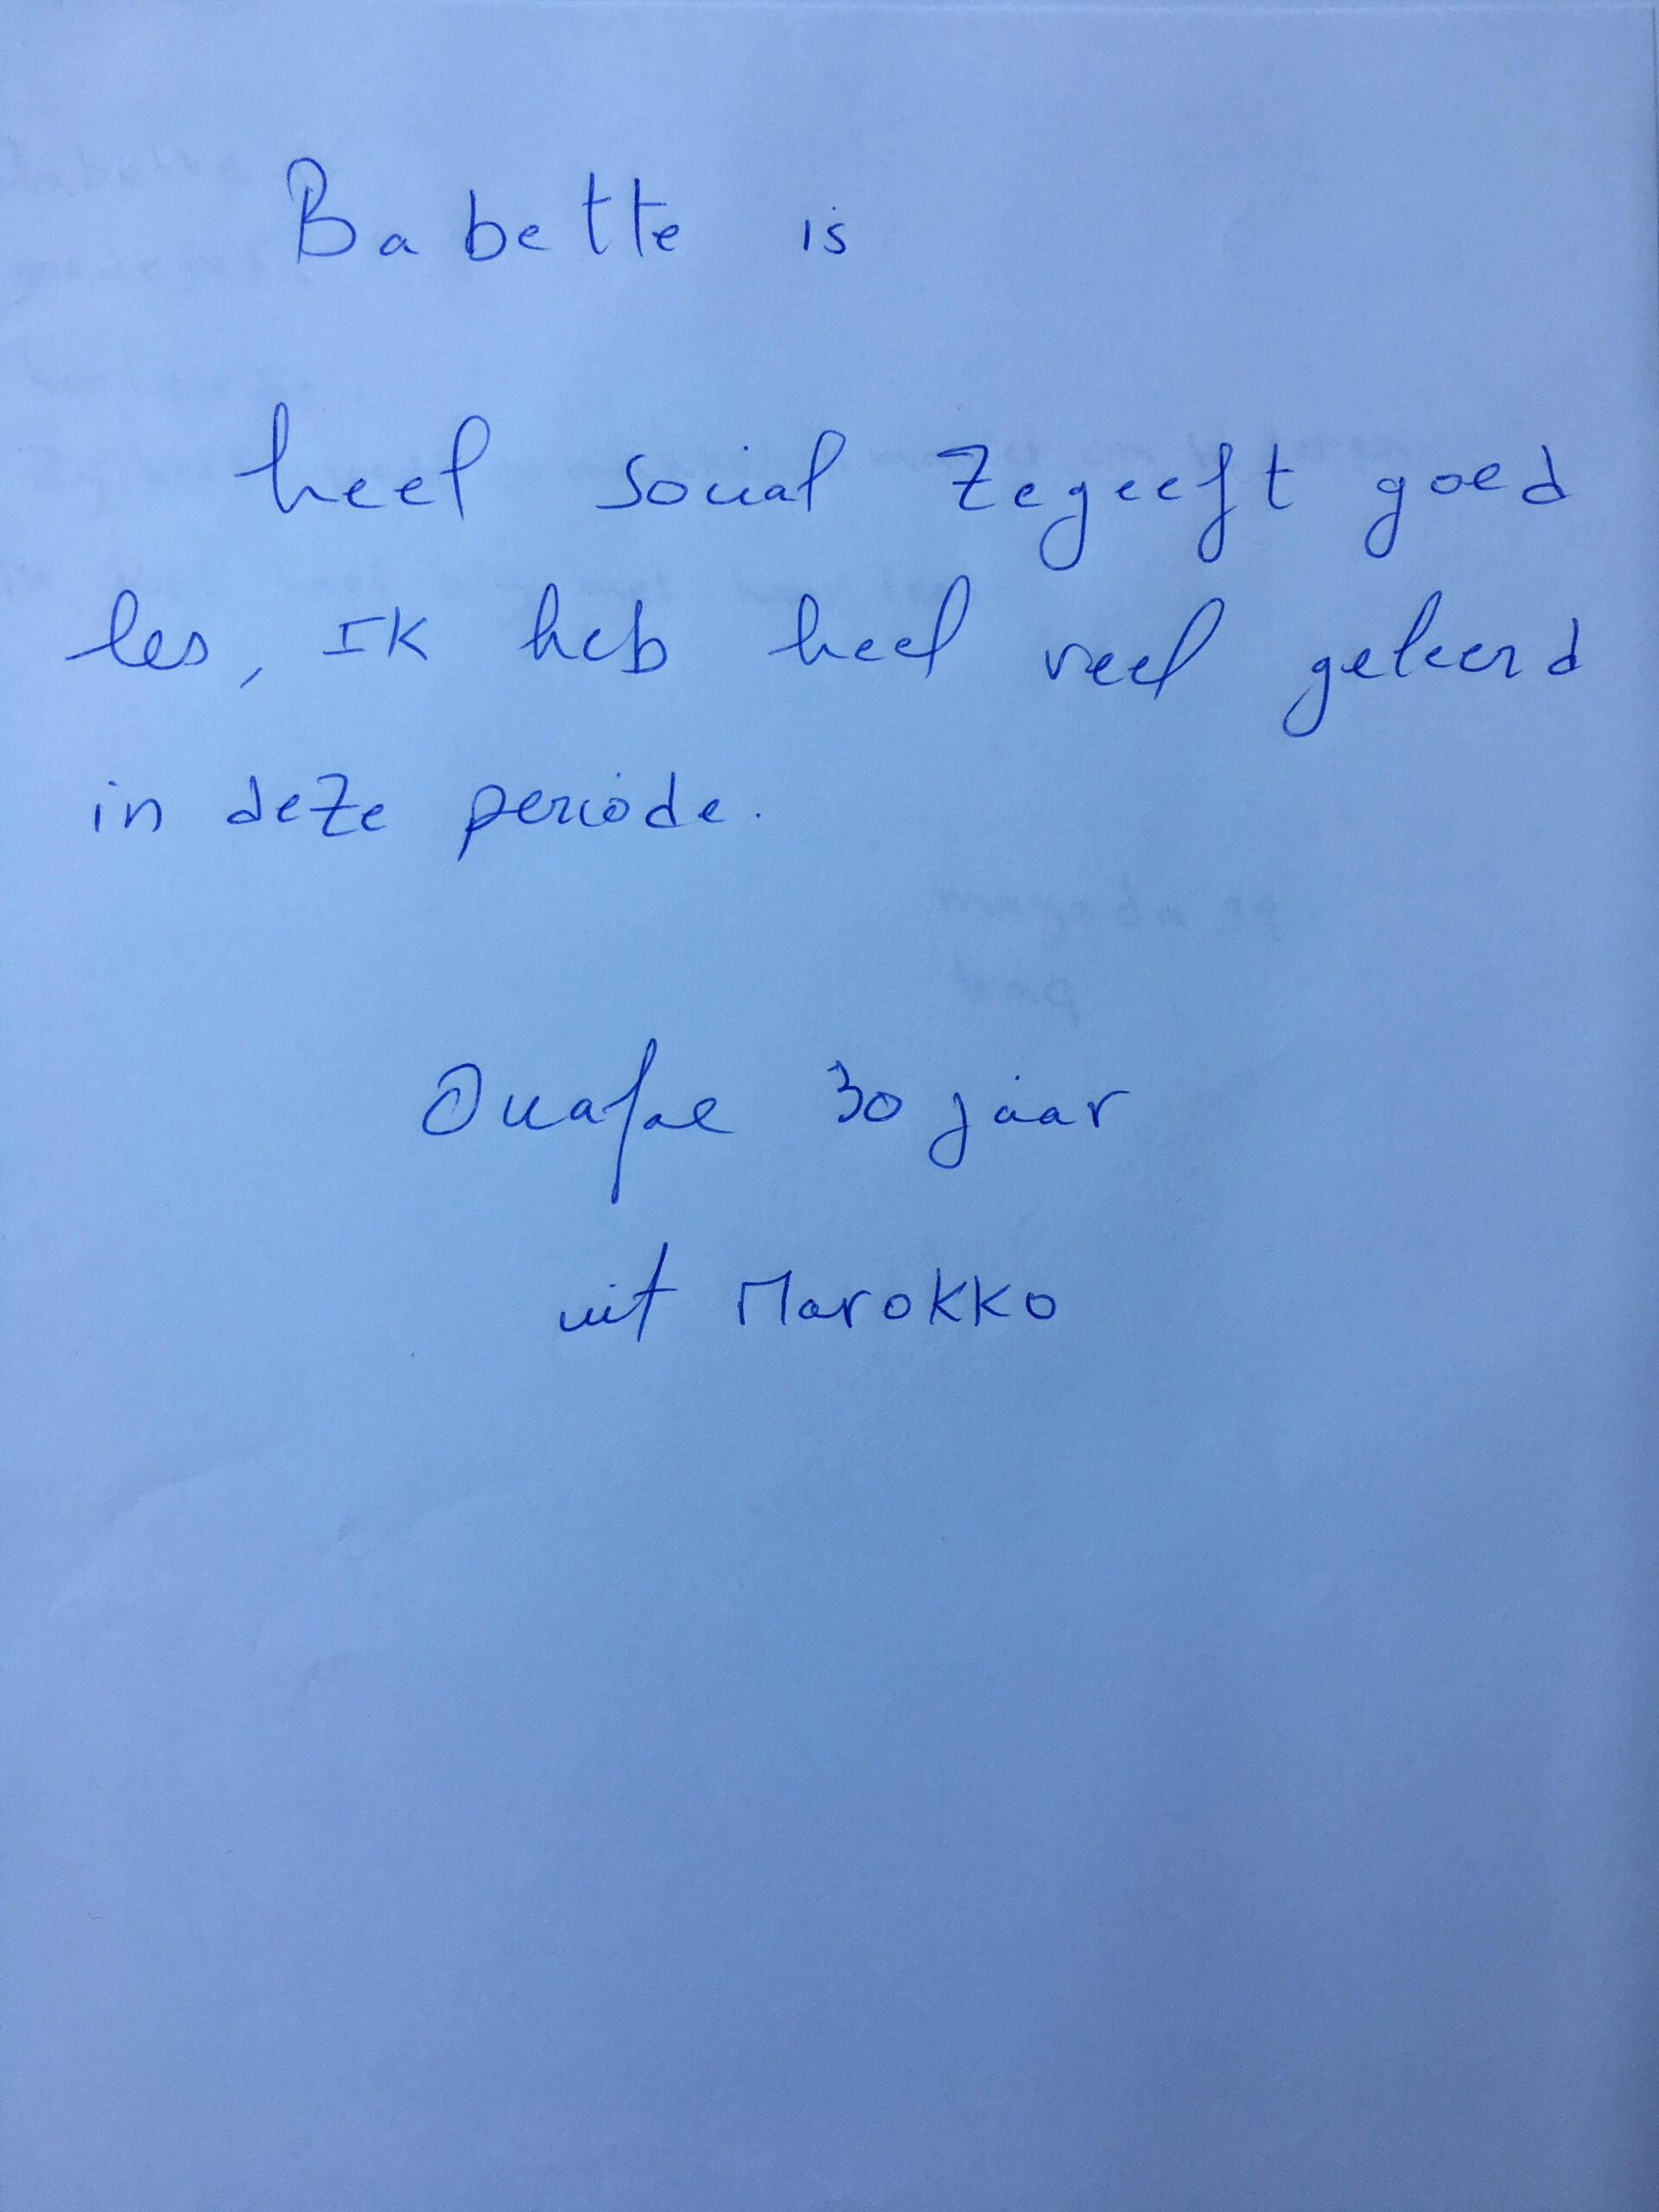 Babette is
heel social Zegeeft goed
les, IK heb heel veel geleerd
in deze periode.
Ouafae 30 jaar
uit Marokko